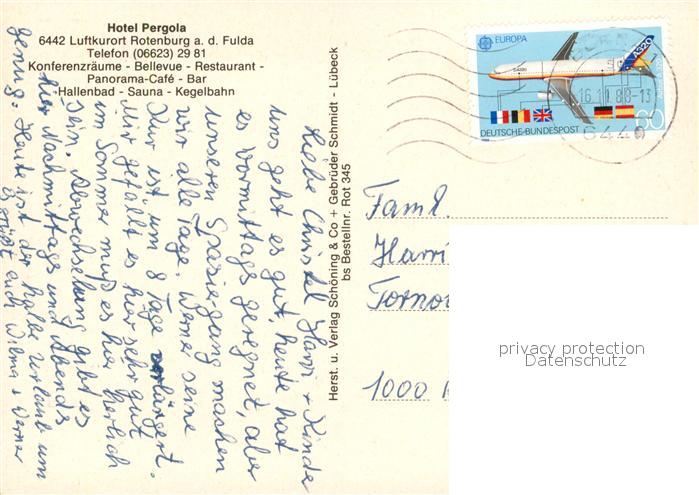 Hotel Pergola
6442 Luftkurort Rotenburg a. d. Fulda
Telefon (06623) 29 81
Konferenzräume - Bellevue - Restaurant -
Panorama-Café - Bar
Hallenbad - Sauna - Kegelbahn
EUROPA
A320
16.10.88-13
644
60
DEUTSCHE·BUNDESPOST
Herst. u. Verlag Schöning & Co + Gebrüder Schmidt - Lübeck
bs Bestellnr. Rot 345
Liebe Christel Harri + Kinder
uns geht es gut, heute hat
es Vormittags geregnet, aber
unseren Spaziergang machen
wir alle Tage. Werner seine
Kur ist um 8 Tage verlängert.
Mir gefällt es hier sehr gut
im Sommer muß es hier herlich
sein. Abwechselung gibt es
hier Nachmittags und Abends
genug. Heute ist der halbe Urlaub um
Es grüßt euch Wilma + Werner
Faml.
Harri
Tornow
1000
privacy protection
Datenschutz